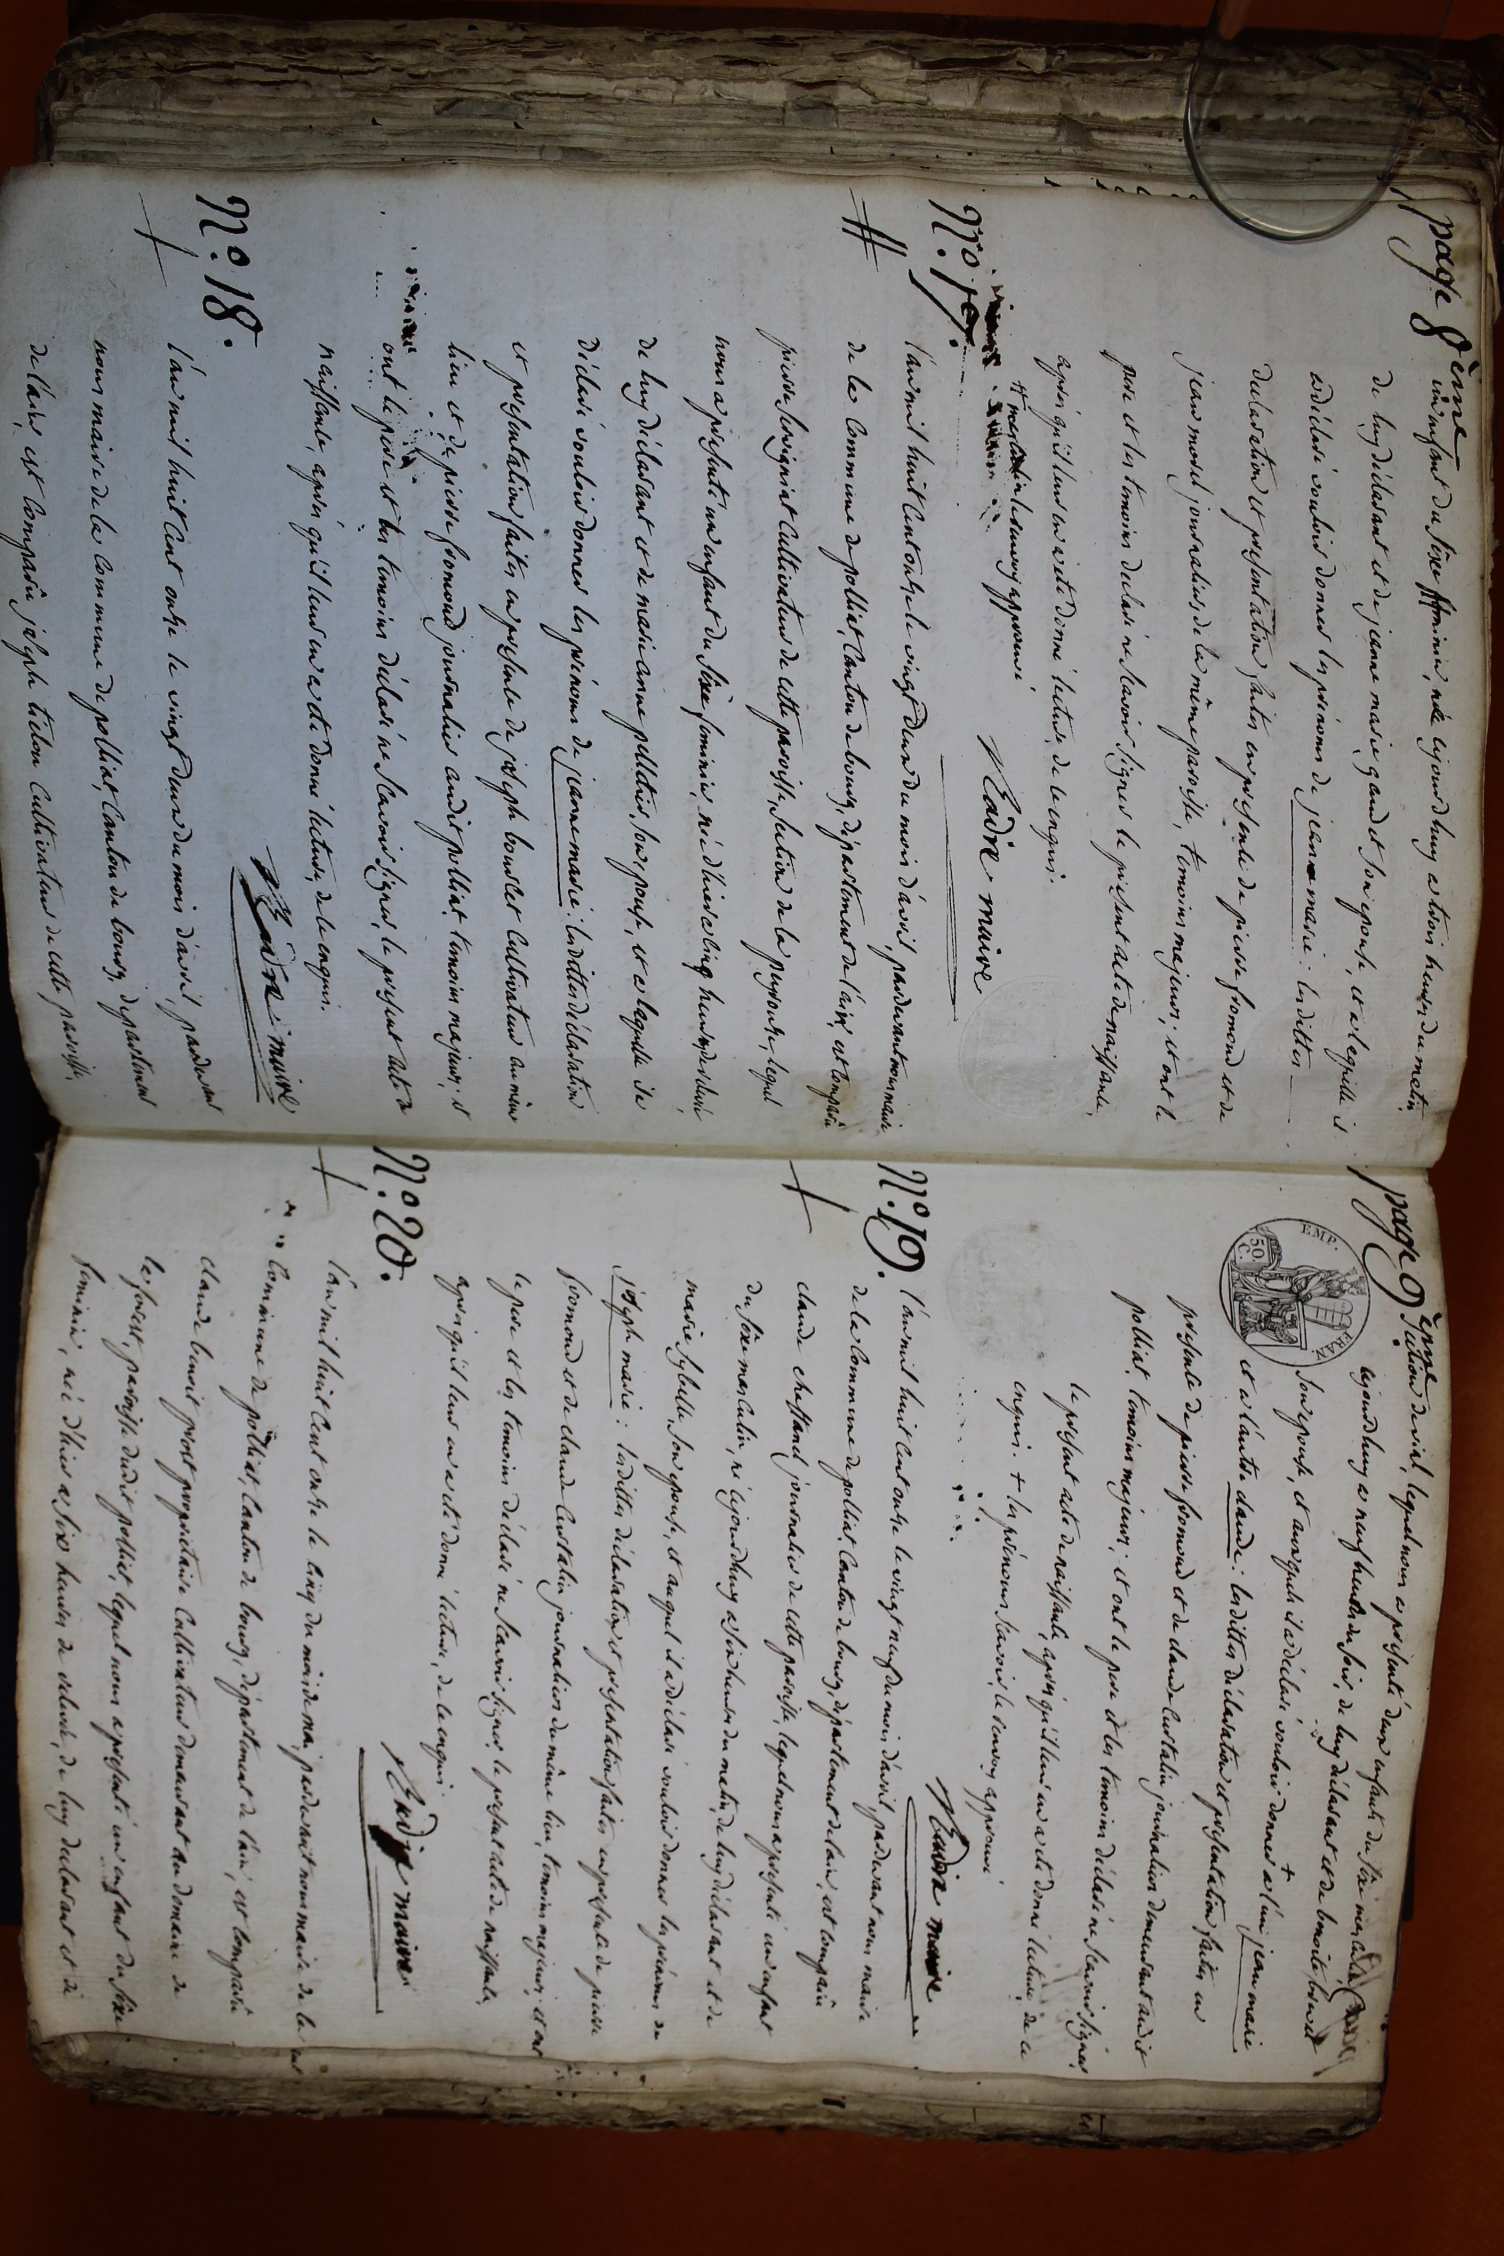 page 8ème
un enfant du sèxe féminin, née cejourdhuy a trois heures du matin
de luy déclarant et de jeanne marie gaudet son epouse, et a laquelle il
a déclaré vouloir donner les prénoms de jeanne marie: lesdittes
declaration et présentation faites en présence de pierre fromond et de
jean morel journaliers de la même paroisse, temoins majeurs; et ont le
pere et les temoins déclaré ne scavoir signer le présent acte de naissance,
après qu'il leur en a eté donné lecture, de ce enquis.
renvoy approuvé
Eadre maire
N°. 17.
l'an mil huit cent onze le vingt deux du mois d'avril, pardevant nous maire
de la commune de polliat, canton de bourg, département de l'ain, est comparu
pierre cultivateur de cette paroisse, section de la lequel
nous a présenté un enfant du sèxe féminin, né d'hier a cinq heures de relevée,
de luy déclarant et de marie anne son epouse, et a laquelle il a
déclaré vouloir donner les prénoms de jeanne marie: lesdittes déclaration
et présentation faites en présence de joseph cultivateur au même
lieu et de pierre fromond journalier audit polliat, temoins majeurs, et
ont le pere et les temoins déclaré ne scavoir signer, le présent acte de
naissance, après qu'il leur en a eté donné lecture, de ce enquis.
Eadre maire
N°. 18.
l'an mil huit cent onze le vingt deux du mois d'avril, pardevant
nous maire de la commune de polliat, canton de bourg, département
de l'ain, est comparu joseph cultivateur de cette paroisse,
page 9ème
section de vial, lequel nous a présenté deux enfants du sèxe masculin
cejourdhuy a neuf heures du soir, de luy déclarant et de benoite
son epouse, et auxquels il a déclaré vouloir donner + a l'un jean marie
et a l'autre claude: lesdittes déclaration et présentation faites en
EMP. FRAN.
50 C.
présence de pierre fromond et de claude journalier demeurant audit
polliat, temoins majeurs; et ont le pere et les temoins déclaré ne scavoir signer,
le présent acte de naissance, après qu'il leur en a eté donné lecture, de ce
enquis. + les prénoms scavoir, le renvoy approuvé
Eadre maire
N°. 19.
l'an mil huit cent onze le vingt neuf du mois d'avril, pardevant nous maire
de la commune de polliat, canton de bourg, département de l'ain, est comparu
claude chassand journalier de cette paroisse, lequel nous a présenté un enfant
du sèxe masculin, né cejourdhuy a six heures du matin, de luy déclarant et de
marie sybelle son epouse, et auquel il a déclaré vouloir donner les prénoms de
joseph marie: lesdittes déclaration et présentation faites en présence de pierre
fromond et de claude journaliers du même lieu, temoins majeurs, et ont
le pere et les temoins déclaré ne scavoir signer, le présent acte de naissance,
après qu'il leur en a eté donné lecture, de ce enquis.
Eadre maire
N°. 20.
l'an mil huit cent onze le cinq du mois de mai, pardevant nous maire de la
commune de polliat, canton de bourg, département de l'ain, est comparu
claude benoit propriétaire cultivateur demeurant au domaine de
la forest, paroisse dudit polliat, lequel nous a présenté un enfant du sèxe
féminin, né d'hier a six heures de relevée, de luy déclarant et de